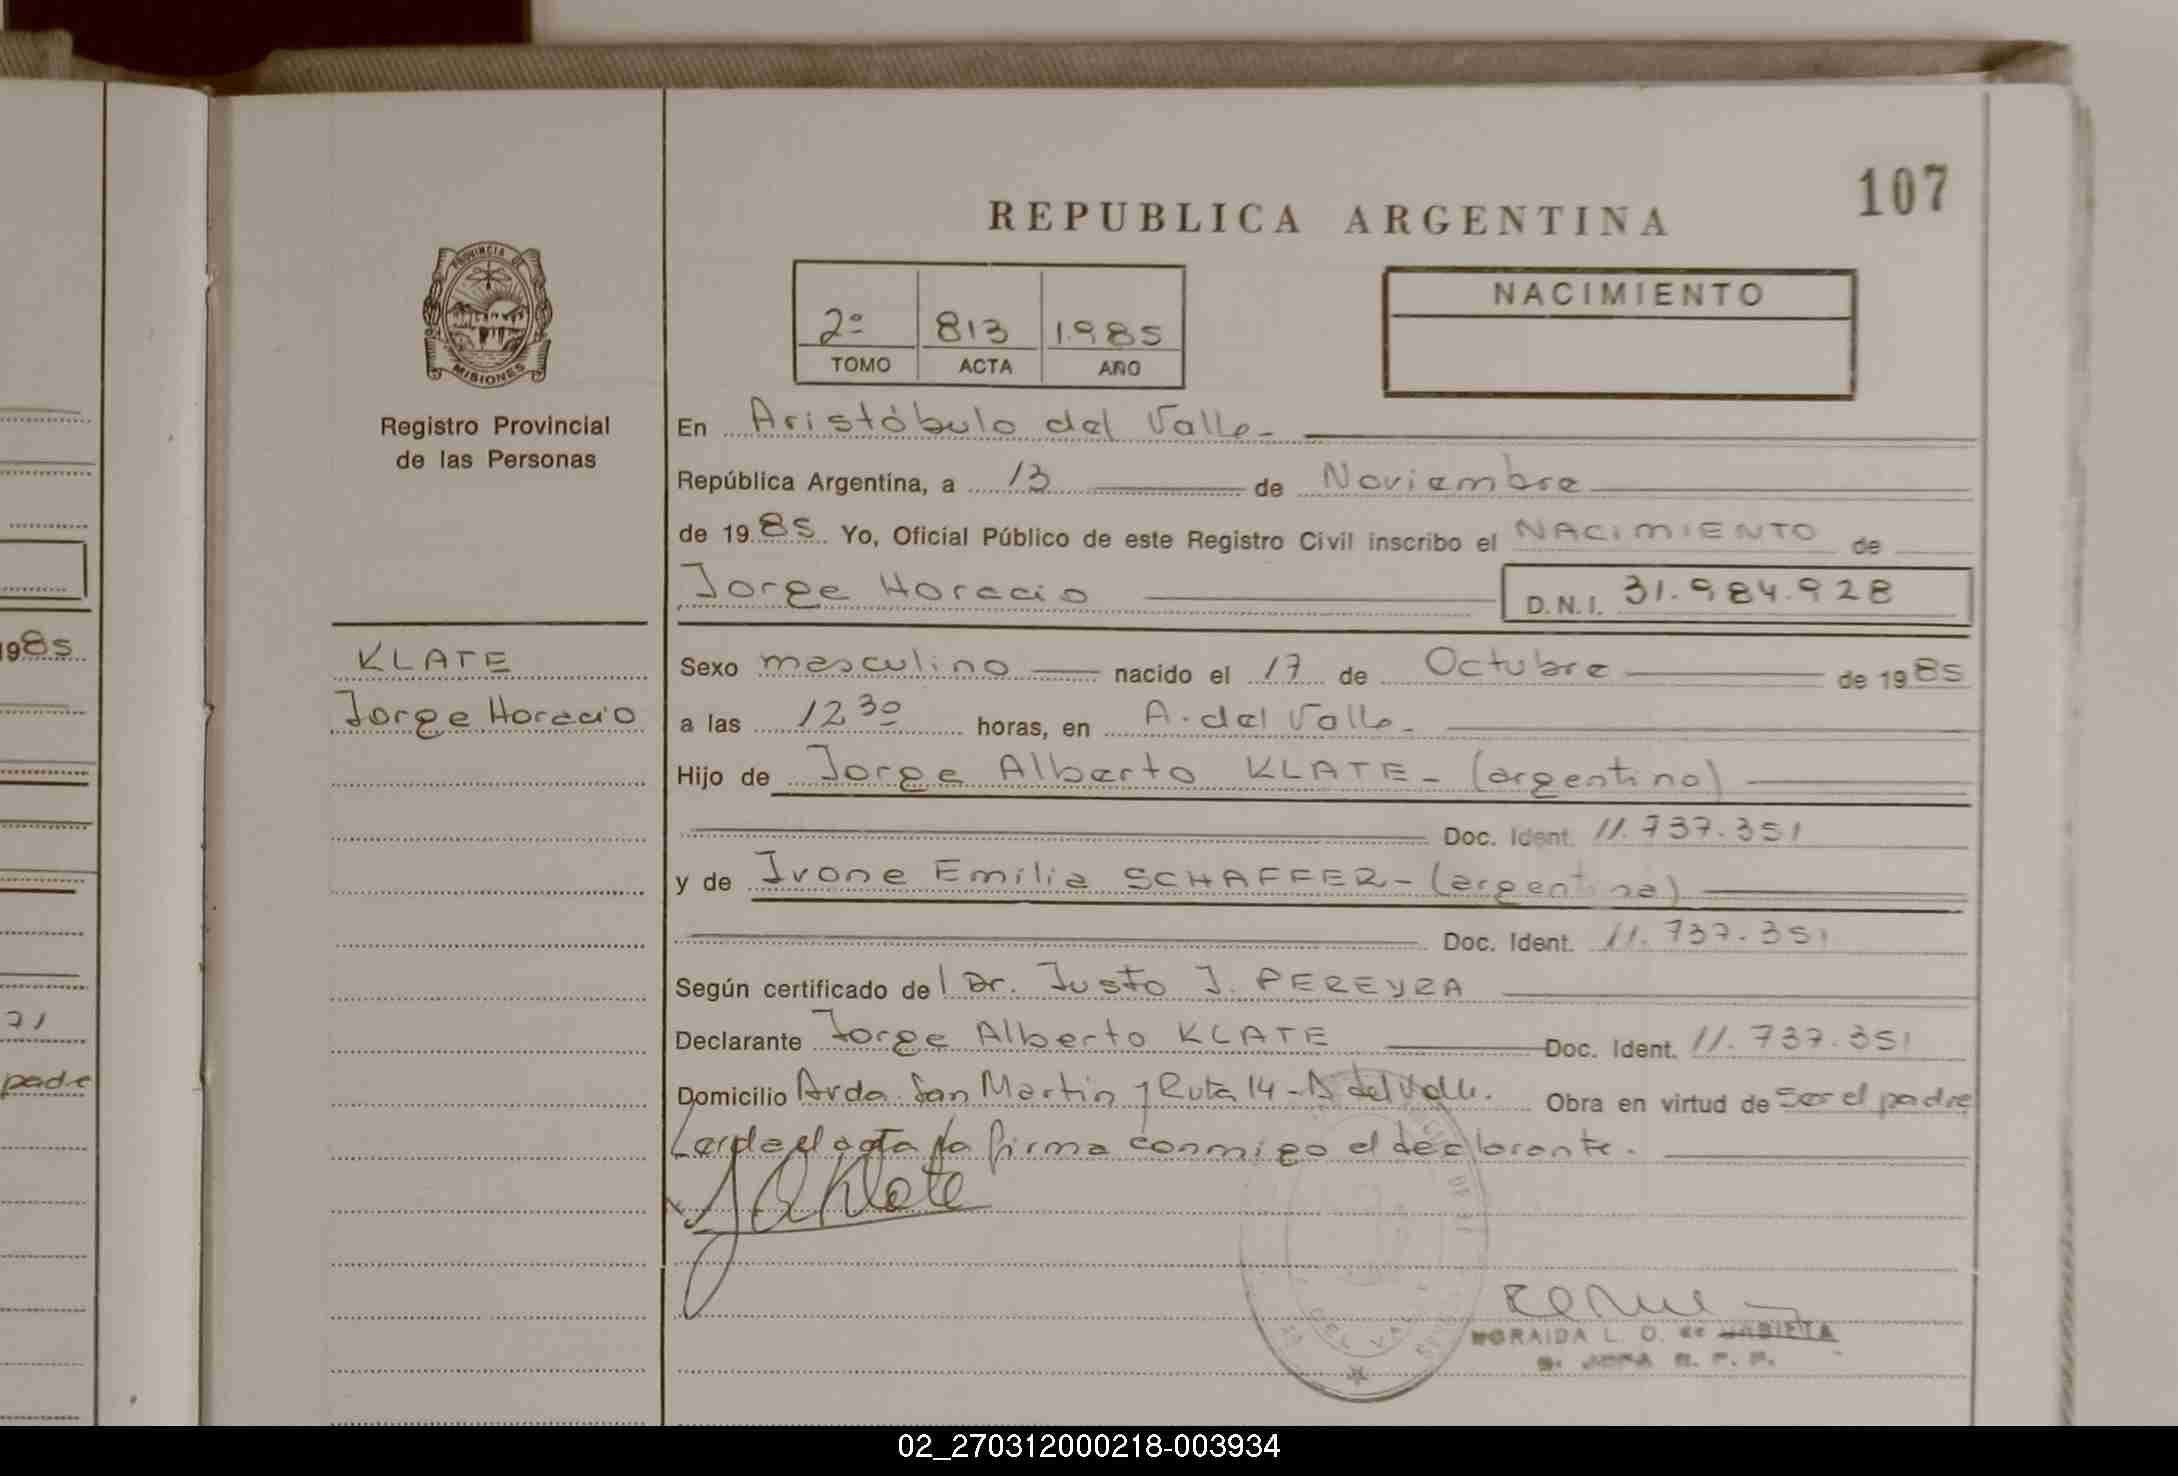 107
REPUBLICA ARGENTINA
PROVINCIA DE
MISIONES
Registro Provincial
de las Personas
2º 813 1.985
TOMO ACTA AÑO
NACIMIENTO
En Aristóbulo del Valle-
República Argentina, a 13 de Noviembre
de 1985 Yo, Oficial Público de este Registro Civil inscribo el NACIMIENTO de
Jorge Horacio D.N.I. 31.984.928
KLATE
Jorge Horacio
Sexo masculino nacido el 17 de Octubre de 1985
a las 12 30 horas, en A. del Valle-
Hijo de Jorge Alberto KLATE - (argentino)
Doc. Ident. 11.737.351
y de Ivone Emilia SCHAFFER - (argentina)
Doc. Ident. 11.737.351
Según certificado del Dr. Justo J. PEREYRA
Declarante Jorge Alberto KLATE Doc. Ident. 11.737.351
Domicilio Avda. San Martin y Ruta 14 - A del Valle. Obra en virtud de ser el padre
Leida el acta la firma conmigo el declarante.
JAKlate
L. O. de
1985
71
padre
02_270312000218-003934